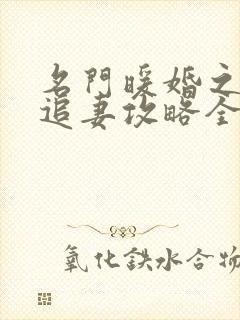 名門暖婚之
追妻攻略全
氧化鉄水合物